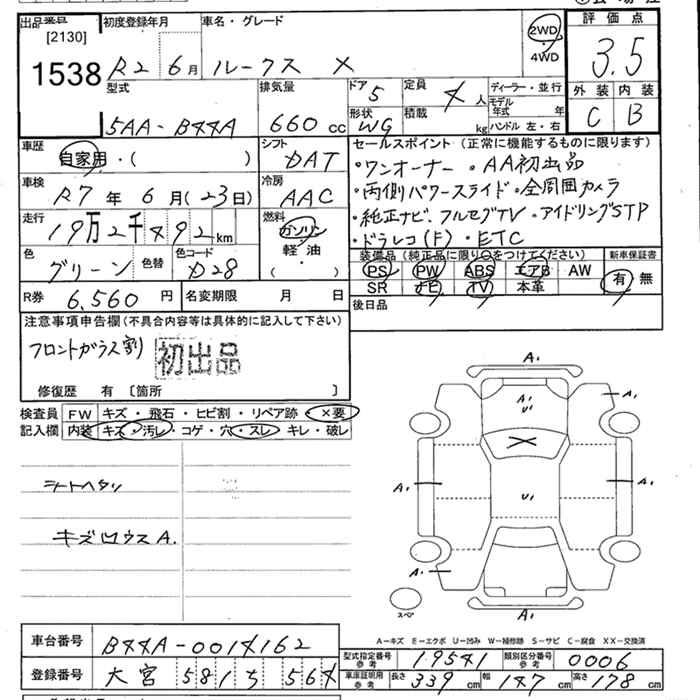 出品番号 初度登録年月 車名・グレード 評価点
[2130]
1538 R2 6月 ルークス X 2WD・4WD 3.5
型式 排気量 ドア 5 定員 4人 ディーラー・並行 外装 内装
モデル年式 年
5AA-B44A 660cc 形状 WG 積載 kg ハンドル 左・右 C B
車歴 自家用・( ) シフト DAT セールスポイント (正常に機能するものに限ります)
・ワンオーナー ・AA初出品
車検 R7年6月(23日) 冷房 AAC ・両側パワースライド・全周囲カメラ
走行 19万2千492km 燃料 ガソリン 軽油 ・( ) ・純正ナビ、フルセグTV・アイドリングSTP
・ドラレコ(F)・ETC
色 グリーン 色替 色コード D28 装備品(純正品に限り○をつけてください) 新車保証書
PS PW ABS エアB AW 有 無
SR ナビ TV 本革
R券 6,560円 名変期限 月 日 後日品
注意事項申告欄(不具合内容等は具体的に記入して下さい)
フロントガラス割 初出品
修復歴 有 〔箇所 〕
検査員 FW キズ・飛石・ヒビ割・リペア跡 ×要
記入欄 内装 キズ・汚レ・コゲ・穴・スレ・キレ・破レ
シートヘタリ
キズ凹ウスA.
A₁
A₁
U₁
A₁
A₁
U₁
A₁
A₁
スペア
A₁
A-キズ E-エクボ U-凹み W-補修跡 S-サビ C-腐食 XX-交換済
車台番号 B44A-0014162
型式指定番号 参考 19541 類別区分番号 参考 0006
登録番号 大宮 581 ち 564
車庫証明用 参考 長さ 339cm 幅 147cm 高さ 178cm